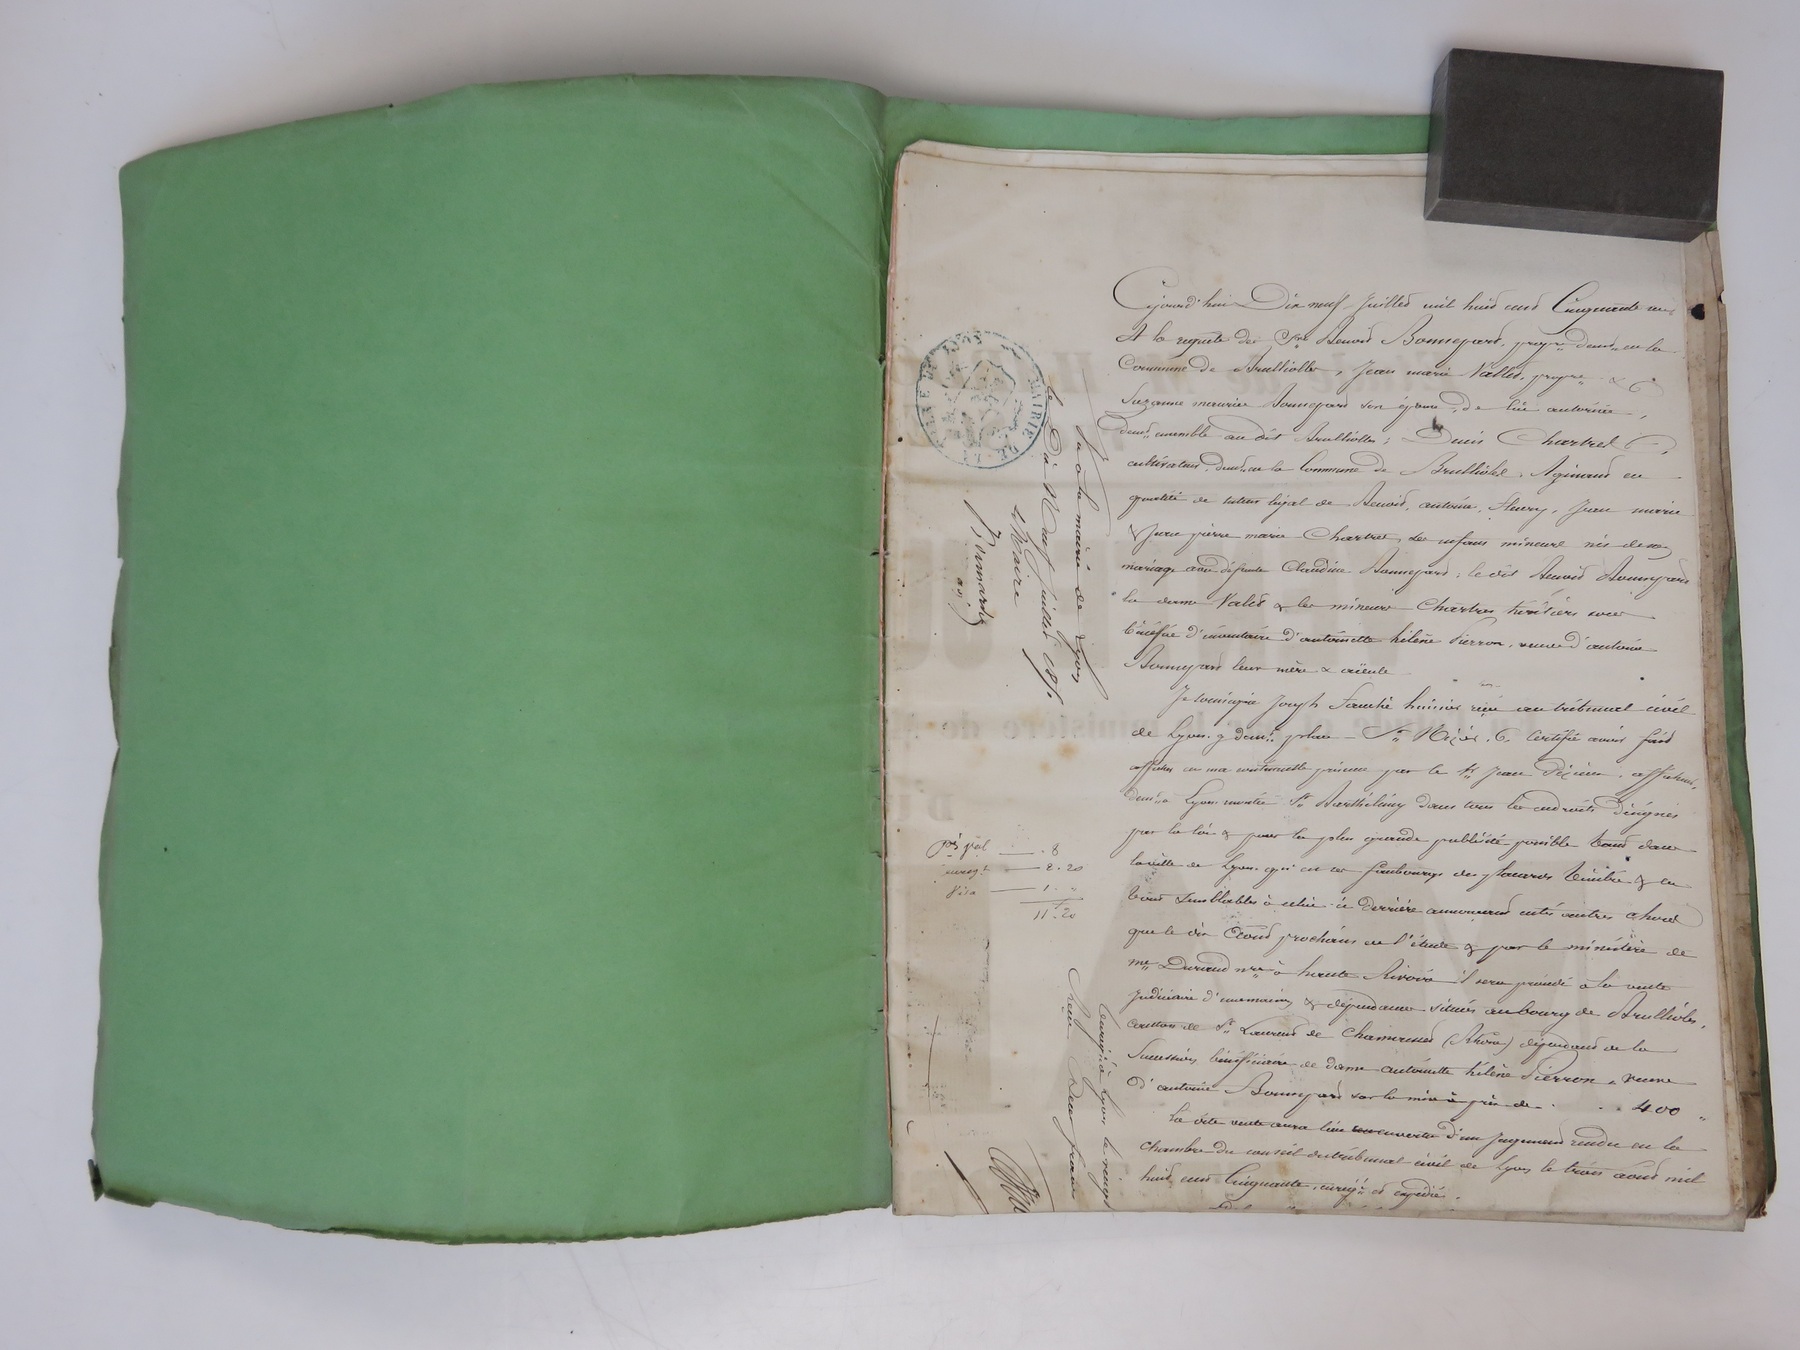 Cejourd'hui Dix neuf Juillet mil huit cent Cinquante un
A la requête des Srs Benoit Bonnepard, propre demt en la
Commune de Brulliolles, Jean marie Vallet, propre &
Suzanne maurice Bonnepard son épouse, de lui autorisée,
demt ensemble au dit Brulliolles; Denis Chartret
cultivateur, demt en la Commune de Brulliolles, Agissant en
qualité de tuteur légal de Benoit, antoine, fleury, Jean marie
& Jean pierre marie Chartret, ses enfans mineurs nés de son
mariage avec défunte Claudine Bonnepard; le dit Benoit Bonnepard
la dame Vallet & les mineurs Chartret héritiers sous
bénéfice d'inventaire d'antoinette hélène Pierron, veuve d'antoine
Bonnepard leur mère & aïeule
Je soussigné Joseph huissier reçu au tribunal civil
de Lyon, y demt place St Nizier, 6, certifie avoir fait
afficher en ma présence par le Sr Jean afficheur,
demt à Lyon montée St Barthélemy dans tous les endroits désignés
par la loi & pour la plus grande publicité possible tant dans
la ville de Lyon qu'en ses faubourgs des placards timbrés & en
tout semblables à celui ci derrière annonçant entre autres choses
que le dix Août prochain en l'étude & par le ministère de
me Durand nre à haute Rivoire il sera procédé à la vente
Judiciaire d'une maison & dépendances situées au bourg de Brulliolles,
canton de St Laurent de Chamousset (Rhône) dépendant de la
Succession bénéficiaire de dame antoinette hélène Pierron, veuve
d'antoine Bonnepard sur la mise à prix de . . . 400 "
La dite vente aura lieu en vertu d'un Jugement rendu en la
chambre du conseil du tribunal civil de Lyon le trois août mil
huit cent Cinquante, enregt et expédié.
MAIRIE DE
Vu à la mairie de Lyon
le Dix Neuf Juillet 1851.
le Maire
ps pal 8
enregt 2.20
Visa 1. "
11.20
Enregé à Lyon le
Reçu Deux francs